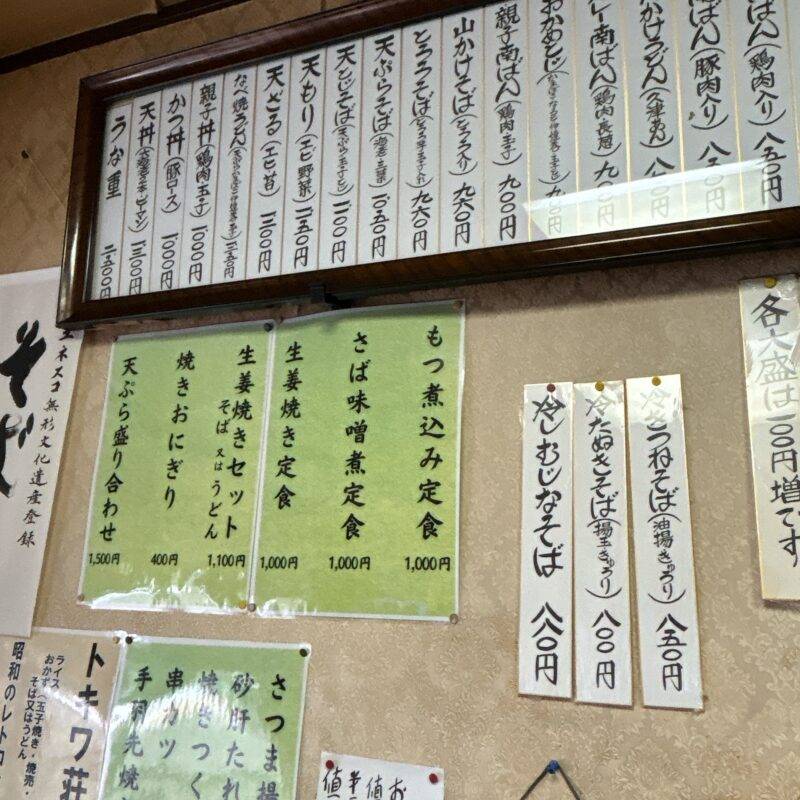 ばん(鶏肉入り) 八五〇円
南ばん(豚肉入り)
かけうどん
レー南ばん(鶏肉長葱)
おかめとじ
親子南ばん(鶏肉玉子) 九〇〇円
山かけそば(とろろ入り) 九六〇円
とろろそば 九六〇円
天ぷらそば
天とじそば 一一〇〇円
天もり(エビ野菜) 一二五〇円
天ざる(エビ苔) 一三〇〇円
なべ焼うどん
親子丼(鶏肉玉子) 一〇〇〇円
かつ丼(豚ロース) 一〇〇〇円
天丼 一三〇〇円
うな重 二五〇〇円
各大盛は一〇〇円増です
冷きつねそば(油揚きゅうり) 八五〇円
冷たぬきそば(揚玉きゅうり) 八〇〇円
冷しむじなそば 八八〇円
もつ煮込み定食 1,000円
さば味噌煮定食 1,000円
生姜焼き定食 1,000円
生姜焼きセット
そば又はうどん 1,100円
焼きおにぎり 400円
天ぷら盛り合わせ 1,500円
ネスコ無形文化遺産登録
そば
さつま揚
砂肝たれ
焼きつく
串カツ
手羽先焼
トキワ荘
ライス
おかず(玉子焼き・焼売・
そば又はうどん
昭和のレトロ